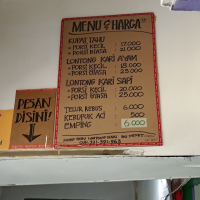 MENU & HARGA
KUPAT TAHU
• PORSI KECIL : 17.000
• PORSI BIASA : 21.000
LONTONG KARI AYAM
• PORSI KECIL : 18.000
• PORSI BIASA : 23.000
LONTONG KARI SAPI
• PORSI KECIL : 20.000
• PORSI BIASA : 25.000
TELUR REBUS : 6.000
KERUPUK ACI : 500
EMPING : 6.000
PESAN
DISINI!